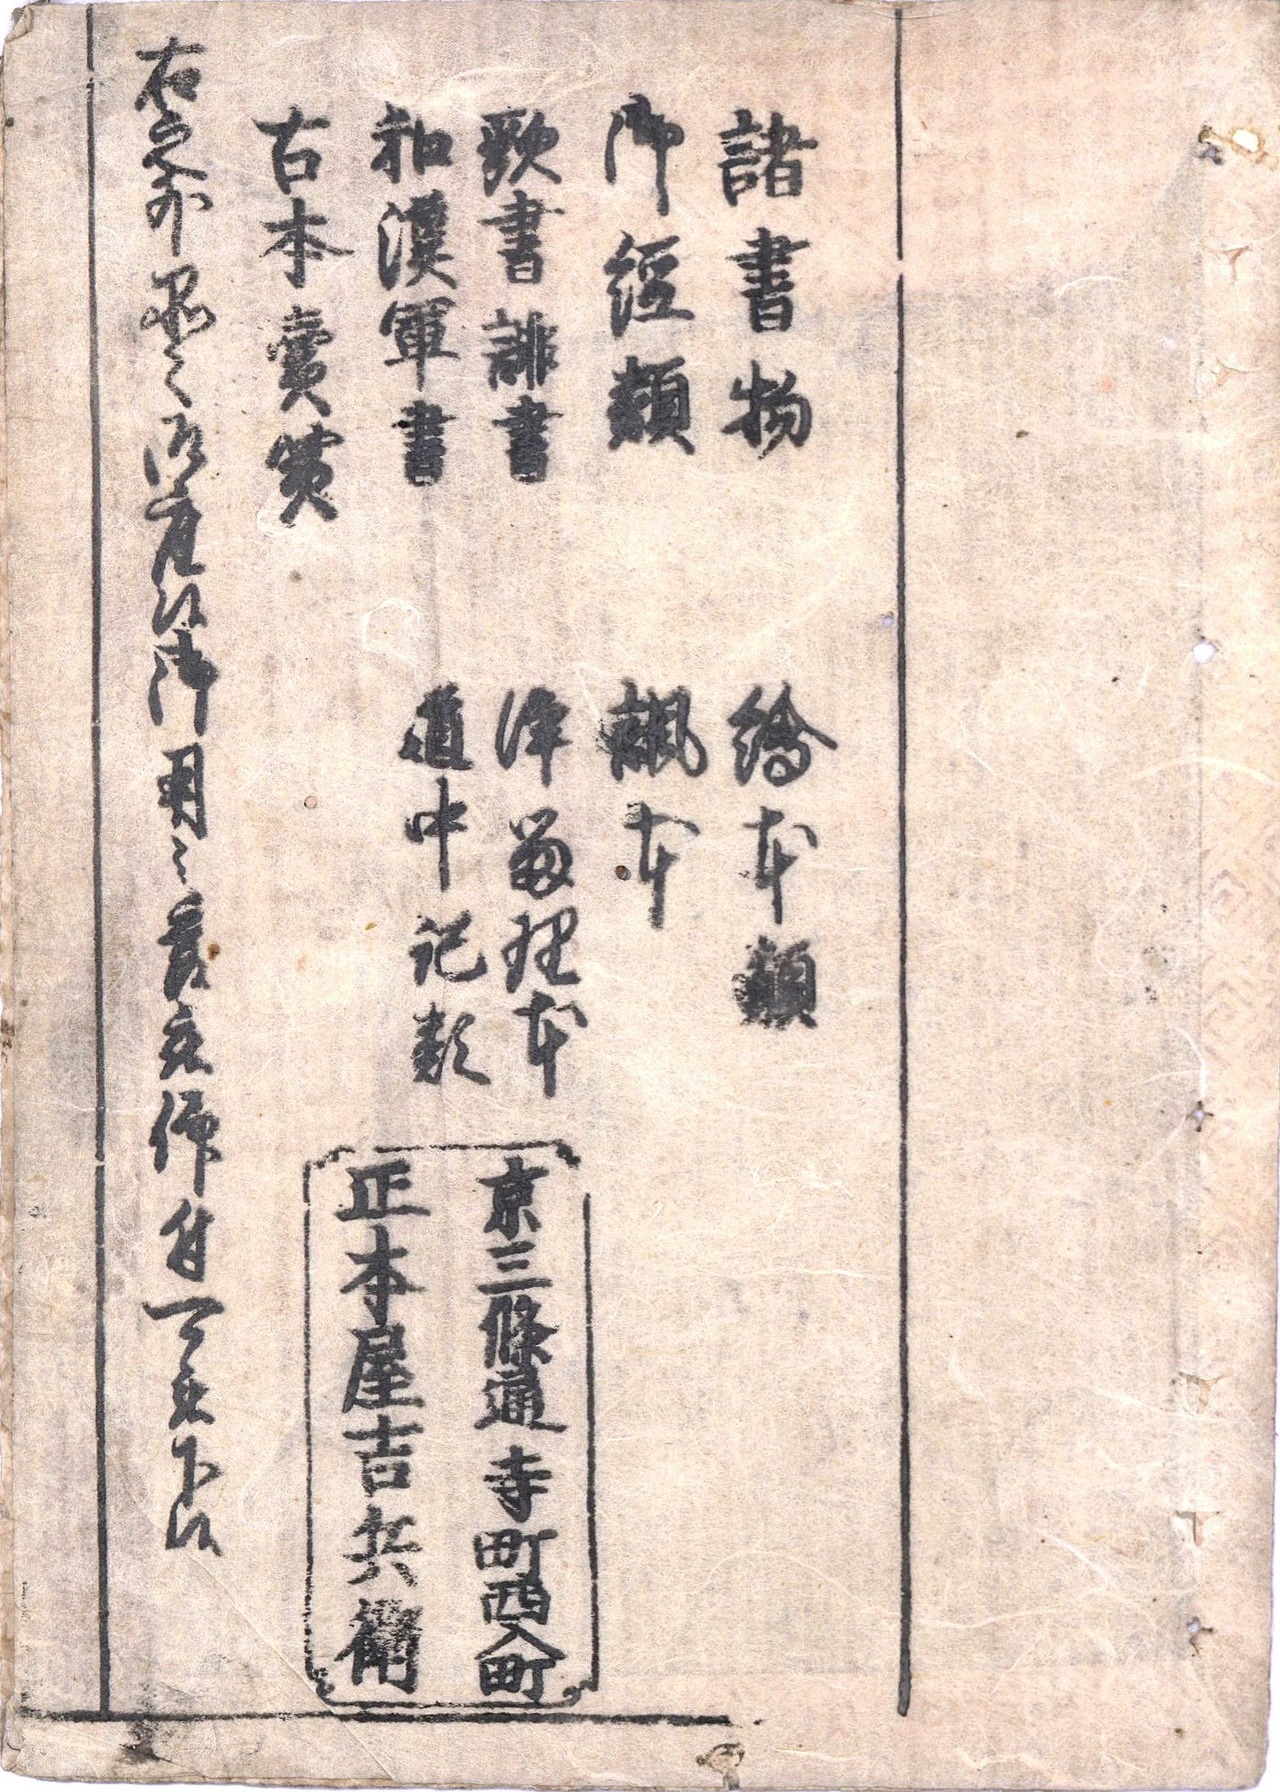 諸書物　繪本類
御経類　諷本
歌書誹書　浄留理本
和漢軍書　道中記類
古本賣買
京三條通寺町西入町
正本屋吉兵衛
右之外品々御座候御用之義被仰付可被下候